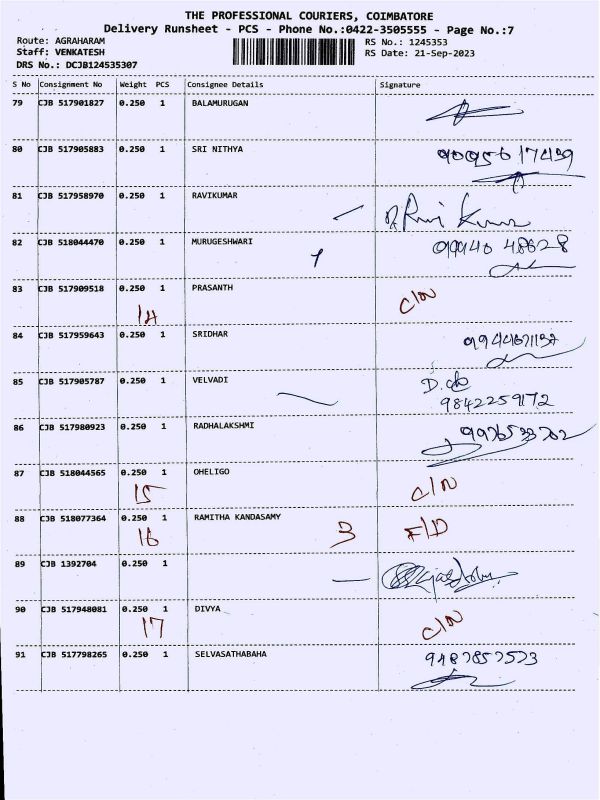 THE PROFESSIONAL COURIERS, COIMBATORE
Delivery Runsheet - PCS - Phone No.:0422-3505555 - Page No.:7
Route: AGRAHARAM RS No.: 1245353
Staff: VENKATESH RS Date: 21-Sep-2023
DRS No.: DCJB124535307
S No Consignment No Weight PCS Consignee Details Signature
79 CJB 517901827 0.250 1 BALAMURUGAN
80 CJB 517905883 0.250 1 SRI NITHYA 9095617439
81 CJB 517958970 0.250 1 RAVIKUMAR
82 CJB 518044470 0.250 1 MURUGESHWARI 09940 48628
1
83 CJB 517909518 0.250 1 PRASANTH C/N
14
84 CJB 517959643 0.250 1 SRIDHAR
85 CJB 517905787 0.250 1 VELVADI
9842259172
86 CJB 517980923 0.250 1 RADHALAKSHMI
87 CJB 518044565 0.250 1 OHELIGO C/N
15
88 CJB 518077364 0.250 1 RAMITHA KANDASAMY 3 F/D
16
89 CJB 1392704 0.250 1
90 CJB 517948081 0.250 1 DIVYA C/N
17
91 CJB 517798265 0.250 1 SELVASATHABAHA 9487857573